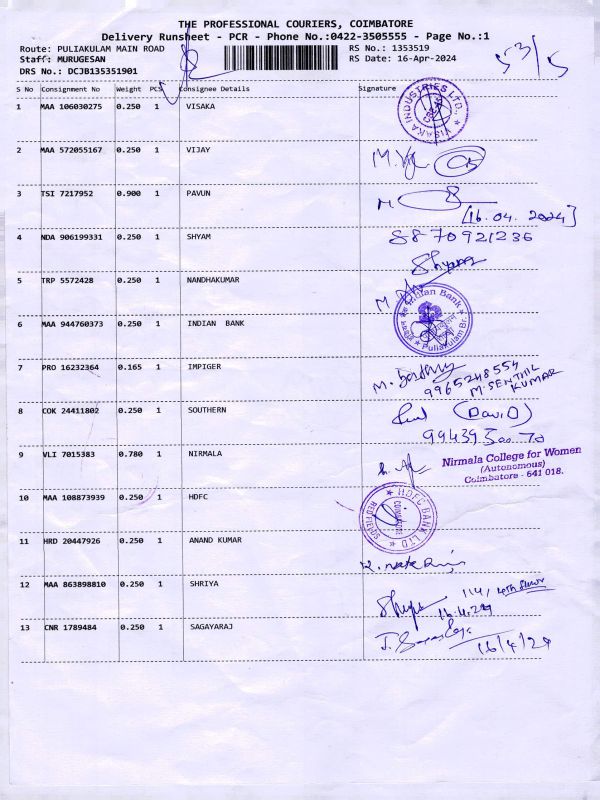 THE PROFESSIONAL COURIERS, COIMBATORE
Delivery Runsheet - PCR - Phone No.:0422-3505555 - Page No.:1
Route: PULIAKULAM MAIN ROAD RS No.: 1353519
Staff: MURUGESAN RS Date: 16-Apr-2024
DRS No.: DCJB135351901
53/5
S No Consignment No Weight PCS Consignee Details Signature
1 MAA 106030275 0.250 1 VISAKA
VISAKA INDUSTRIES LTD.,
2 MAA 572055167 0.250 1 VIJAY
3 TSI 7217952 0.900 1 PAVUN
[16.04.2024]
4 NDA 906199331 0.250 1 SHYAM 8870921236
Shyam
5 TRP 5572428 0.250 1 NANDHAKUMAR
6 MAA 944760373 0.250 1 INDIAN BANK
Indian Bank
Puliakulam Br.
7 PRO 16232364 0.165 1 IMPIGER
9965248554
M. SENTHIL
KUMAR
8 COK 24411802 0.250 1 SOUTHERN (DAVID)
99439
9 VLI 7015383 0.780 1 NIRMALA
Nirmala College for Women
(Autonomous)
Coimbatore - 641 018.
10 MAA 108873939 0.250 1 HDFC
HDFC BANK LTD
COIMBATORE
11 HRD 20447926 0.250 1 ANAND KUMAR
12 MAA 863898810 0.250 1 SHRIYA
16.4.24
13 CNR 1789484 0.250 1 SAGAYARAJ
16/4/24